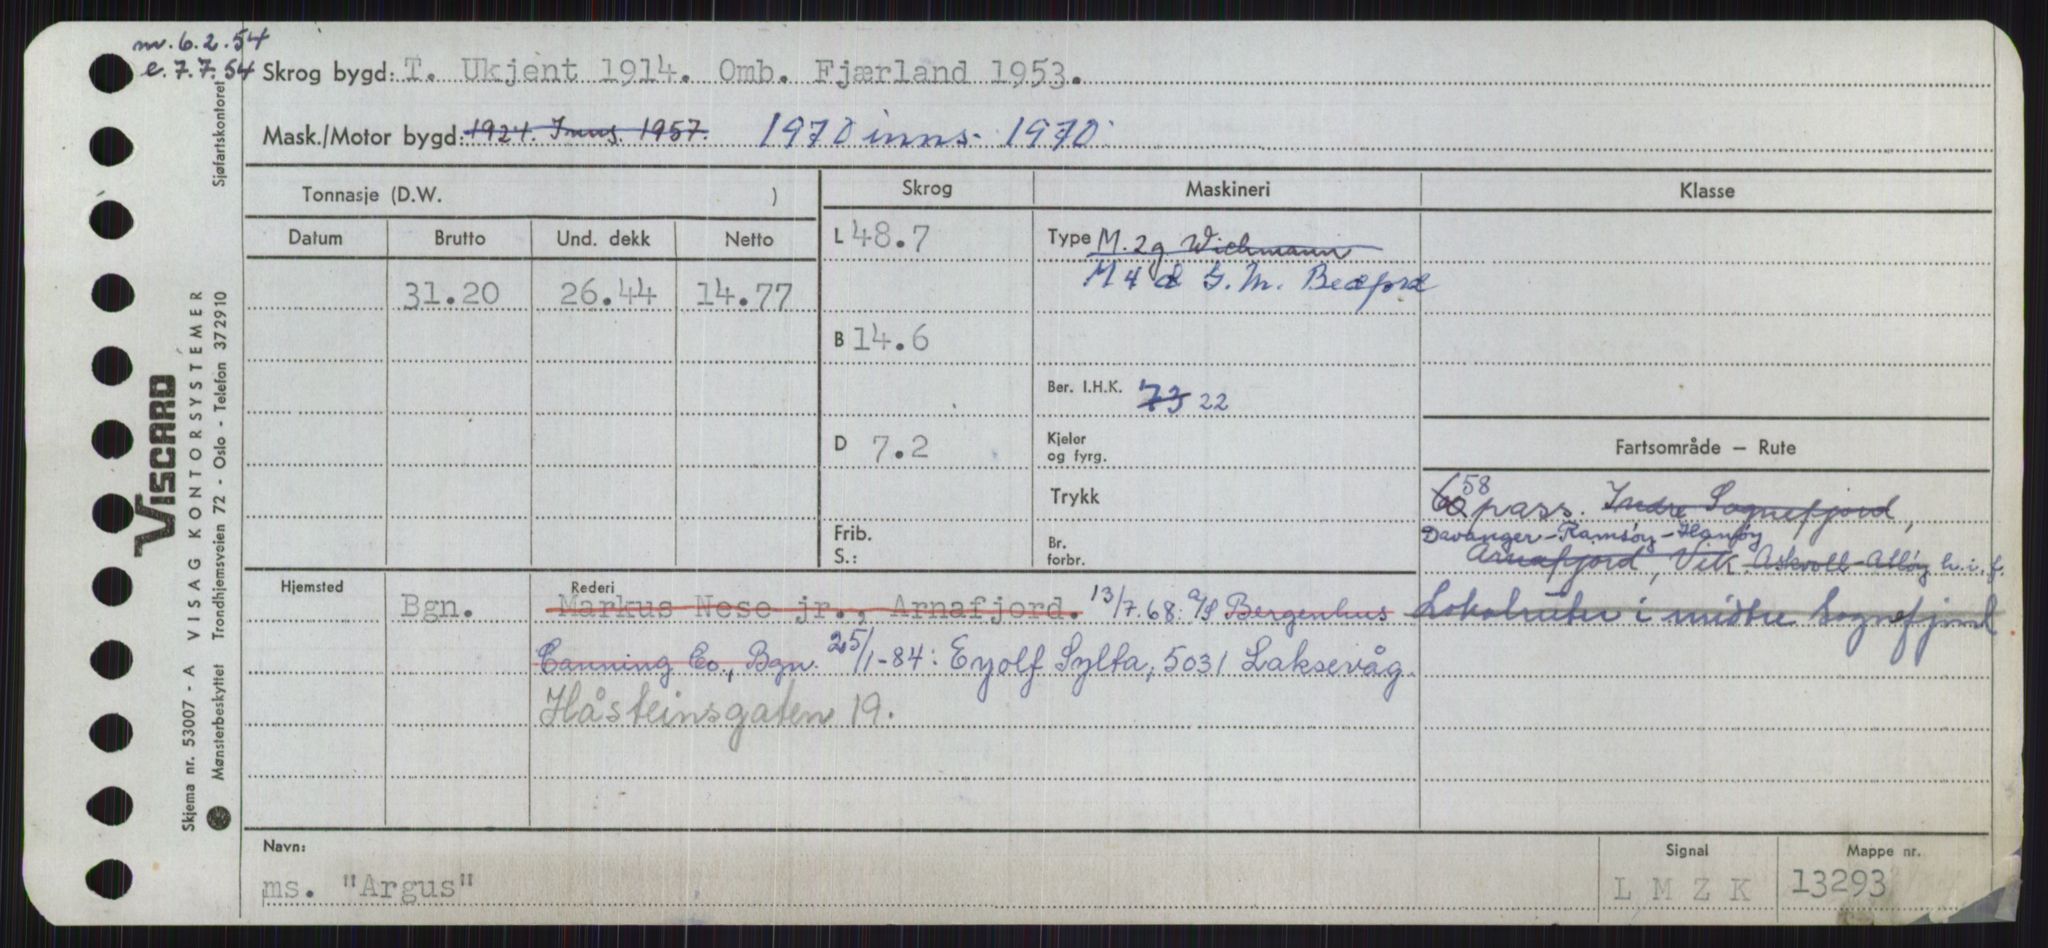 m. 6.2.54
e. 7.7.54
Skrog bygd: T. Ukjent 1914. Omb. Fjærland 1953.
Mask./Motor bygd: 1921. Inns. 1957. 1970 inns. 1970.
Tonnasje (D.W. )
Skrog
Maskineri
Klasse
Datum Brutto Und. dekk Netto
31.20 26.44 14.77
L 48.7
B 14.6
D 7.2
Frib.
S.:
Type M. 2g Wichmann
M 4 d G.M. Bedford
Ber. I.H.K. 73 22
Kjeler
og fyrg.
Trykk
Br.
forbr.
Fartsområde – Rute
58
60 pass. Indre Sognefjord,
Davanger-Ramsøy-Hanøy
Arnafjord, Vik. Askvoll-Atløy h.i.f.
Lokalruter i midtre Sognefjord
Hjemsted
Rederi
Bgn. Markus Nese jr., Arnafjord. 13/7.68: A/S Bergenhus
Canning Co., Bgn. 25/1-84: Eyolf Sylta, 5031 Laksevåg.
Håsteinsgaten 19.
Navn:
ms. "Argus"
Signal
L M Z K
Mappe nr.
13293
VISCARD
VISAG KONTORSYSTEMER
Skjema nr. 53007 - A
Mønsterbeskyttet Trondhjemsveien 72 - Oslo - Telefon 372910
Sjøfartskontoret